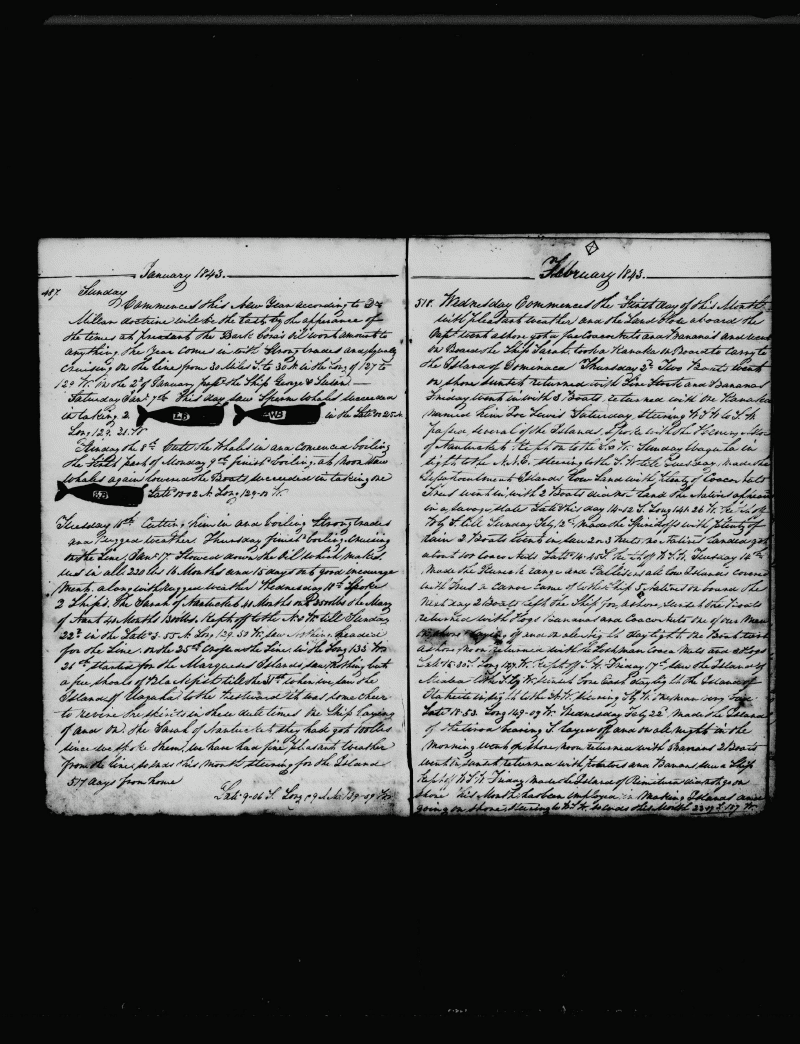 January 1843.
487 Sunday
Commences this New Year according to
Millan doctrine will be the Last, by the appearance of
the times at present the Bark Cora's oil wont amount to
anything the Year come in with Strong trades and
cruising on the line from 30 Miles S. to 30 N in the Long of 127 to
129 W. on the 2d of January spoke the Ship George & Susan
Saturday Jan 7th This day saw Sperm Whales succeeded
in taking 2 LB WB in the Lat 0.25 N
Long 129.21 W
Sunday the 8th Cut the Whales in and commenced boiling
the Fore part of Monday 9th finish boiling, at Noon saw
whales again lowered the Boats succeeded in taking one
BB Lat 0-02 N Long 129-10 W.
Tuesday 10th Cutting him in and boiling Strong trades
and rugged weather Thursday finish boiling, cruising
on the Line Jan 17 Stowed down the Oil which makes
us in all 220 bbls 16 Months and 15 days out good encourage
Ment, along with rugged weather Wednesday 18th Spoke
2 Ships. The Sarah of Nantucket 41 Months out 2500 bbls the Mary
of Nant 40 Months Kept off to the N.W. till Sunday
22d in the Lat 3-55 N Long 129.50 W. saw Nothing headed
for the Line, on the 25th Crossed the Line in the Long 133 W
28th started for the Marquesas Islands, saw Nothing but
a few shoals of till the 31st when we saw the
Islands of to the Westward it was some cheer
to revive the Spirits in these dull times One Ship laying
of and on the Sarah of Nantucket they had got 100 bbls
since we spoke them, we have had fine pleasant weather
from the line, so ends this month steering for the Island
517 days from home
Lat 9-06 S. Long 139-09 W.
February 1843.
518. Wednesday Commences the First day of this Month
with pleasant weather and the Land close aboard the
Capt went ashore got a few Cocoa Nuts and Bananas and went
on Board the Ship Sarah. took a Kanaka on Board to carry to
the Island of Thursday 2d Two Boats went
on shore sunset returned with and Bananas
Friday went in with 3 Boats returned with one Kanaka
named him Joe Lewis Saturday Steering W.S.W to S.W
passed several of the Islands. Spoke with the
of Nantucket Kept on to the S.W. Sunday in
sight to the N.N.E. steering to the S.W. till Tuesday, made the
Disappointment Islands low Land with Plenty of Cocoa Nuts
Trees went in with 2 Boats did not land the Natives appeared
in a Savage State Lat this day 14-12 S. Long 141 26 W. Kept off
W by S. till Sunday Feby 12th, made the with Plenty of
Rain 2 Boats went in saw 2 or 3 Huts no Natives landed got
about 100 Cocoa Nuts Lat 14-45 S. Kept off W.S.W. Tuesday 14th
made the Range and Pallisers all low Islands covered
with Trees a Canoe came of to the Ship 5 Natives on board the
next day 2 Boats left the Ship for ashore, sundown the Boats
returned with Hogs Bananas and Cocoa Nuts one of our Men
on shore laying of and on all night daylight one Boat went
ashore, Noon returned with the Lost man Cocoa Nuts and 2 Hogs
Lat 15-30 S. Long 147 W. Kept off S.W. Friday 17th saw the Island of
to the S by W. daylight the Island of
Otaheita in sight to the S.W. Steering S by W.
Lat 18-53 Long 149-09 W. Wednesday Feby 22d, made the Island
of bearing S. layed off and on all night in the
Morning went of shore, noon returned with Bananas 2 Boats
went in sunset returned with potatoes and Bananas, saw a Ship
Kept of W.S.W. Friday made the Island of Rimatara did not go on
shore this Month has been employed in Making Islands and
going on shore. Steering to S.W. So ends this Month 23-19 S. 157 W.